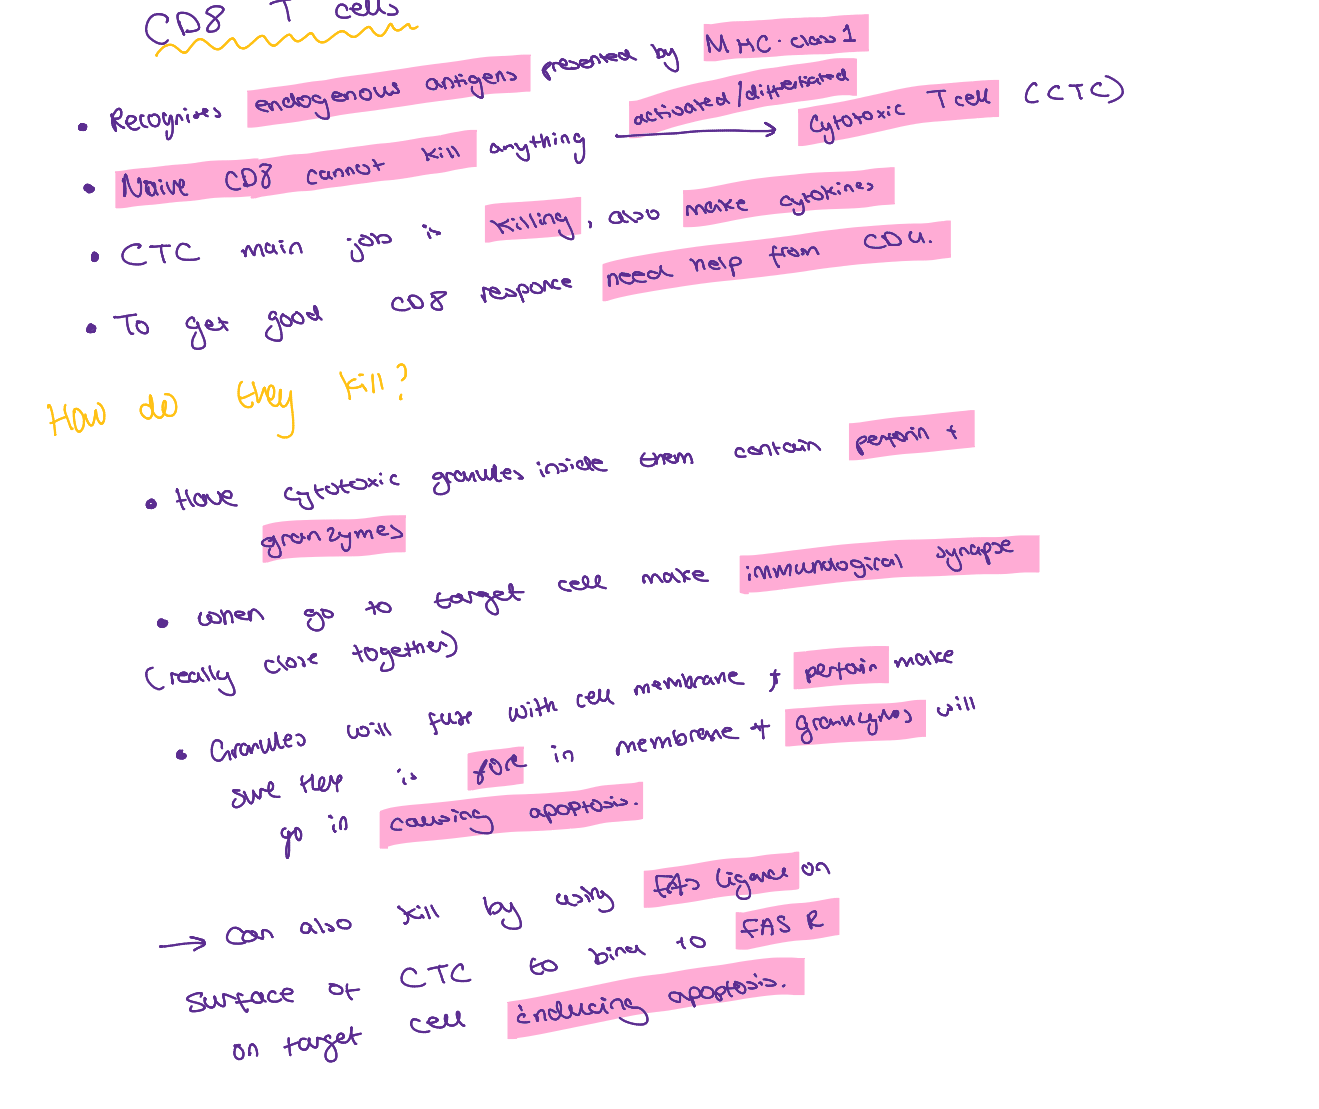 CD8 T cells
• Recognises endogenous antigens presented by MHC class 1
• Naive CD8 cannot kill anything activated/differtiated → Cytotoxic T cell (CTC)
• CTC main job is killing, also make cytokines
• To get good CD8 responce need help from CD4.
How do they kill?
• Have cytotoxic granules inside them contain perforin +
granzymes
• when go to target cell make immunological synapse
(really close together)
• Granules will fuse with cell membrane + perforin make
sure there is pore in membrane + granzymes will
go in causing apoptosis.
→ Can also kill by using FAS ligand on
surface of CTC to bind to FAS R
on target cell inducing apoptosis.